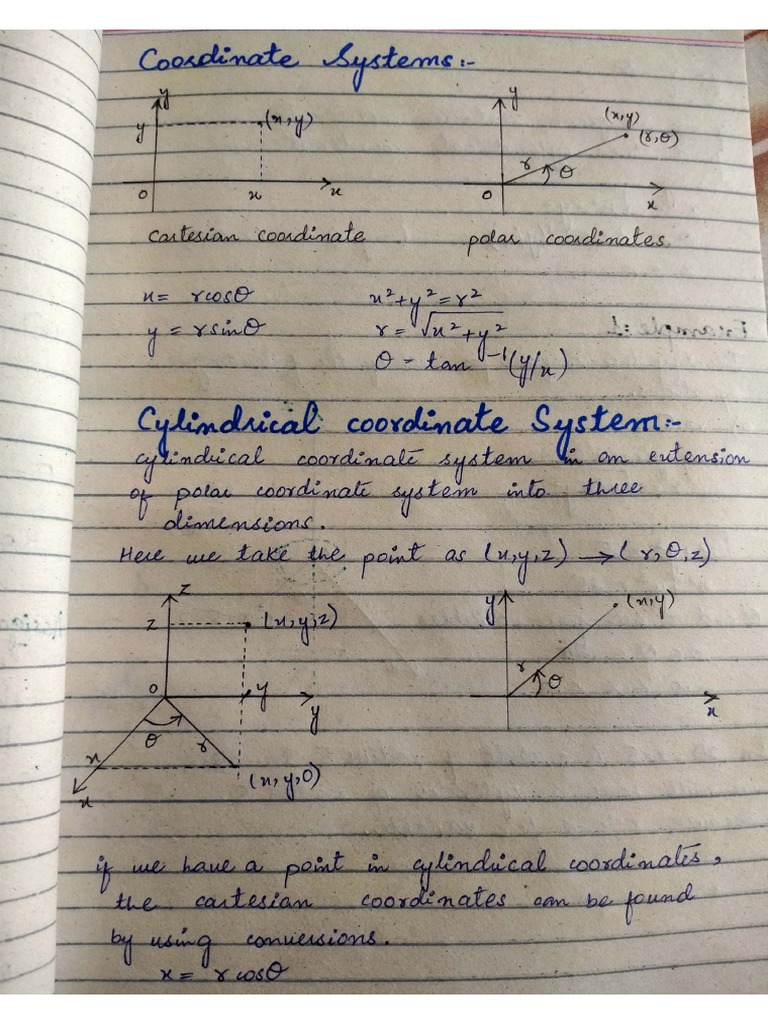 Coordinate Systems:-
y
y
(x,y)
0
x
x
Cartesian coordinate
y
(x,y)
(r,θ)
r
θ
0
x
polar coordinates
x = rcosθ
y = rsinθ
x²+y²=r²
r = √x²+y²
θ = tan⁻¹(y/x)
Cylindrical coordinate System:-
cylindrical coordinate system in an extension
of polar coordinate system into three
dimensions.
Here we take the point as (x,y,z) → (r,θ,z)
z
z
(x,y,z)
0
y
y
θ
r
x
x
(x,y,0)
y
(x,y)
r
θ
x
if we have a point in cylindrical coordinates,
the cartesian coordinates can be found
by using conversions.
x = rcosθ